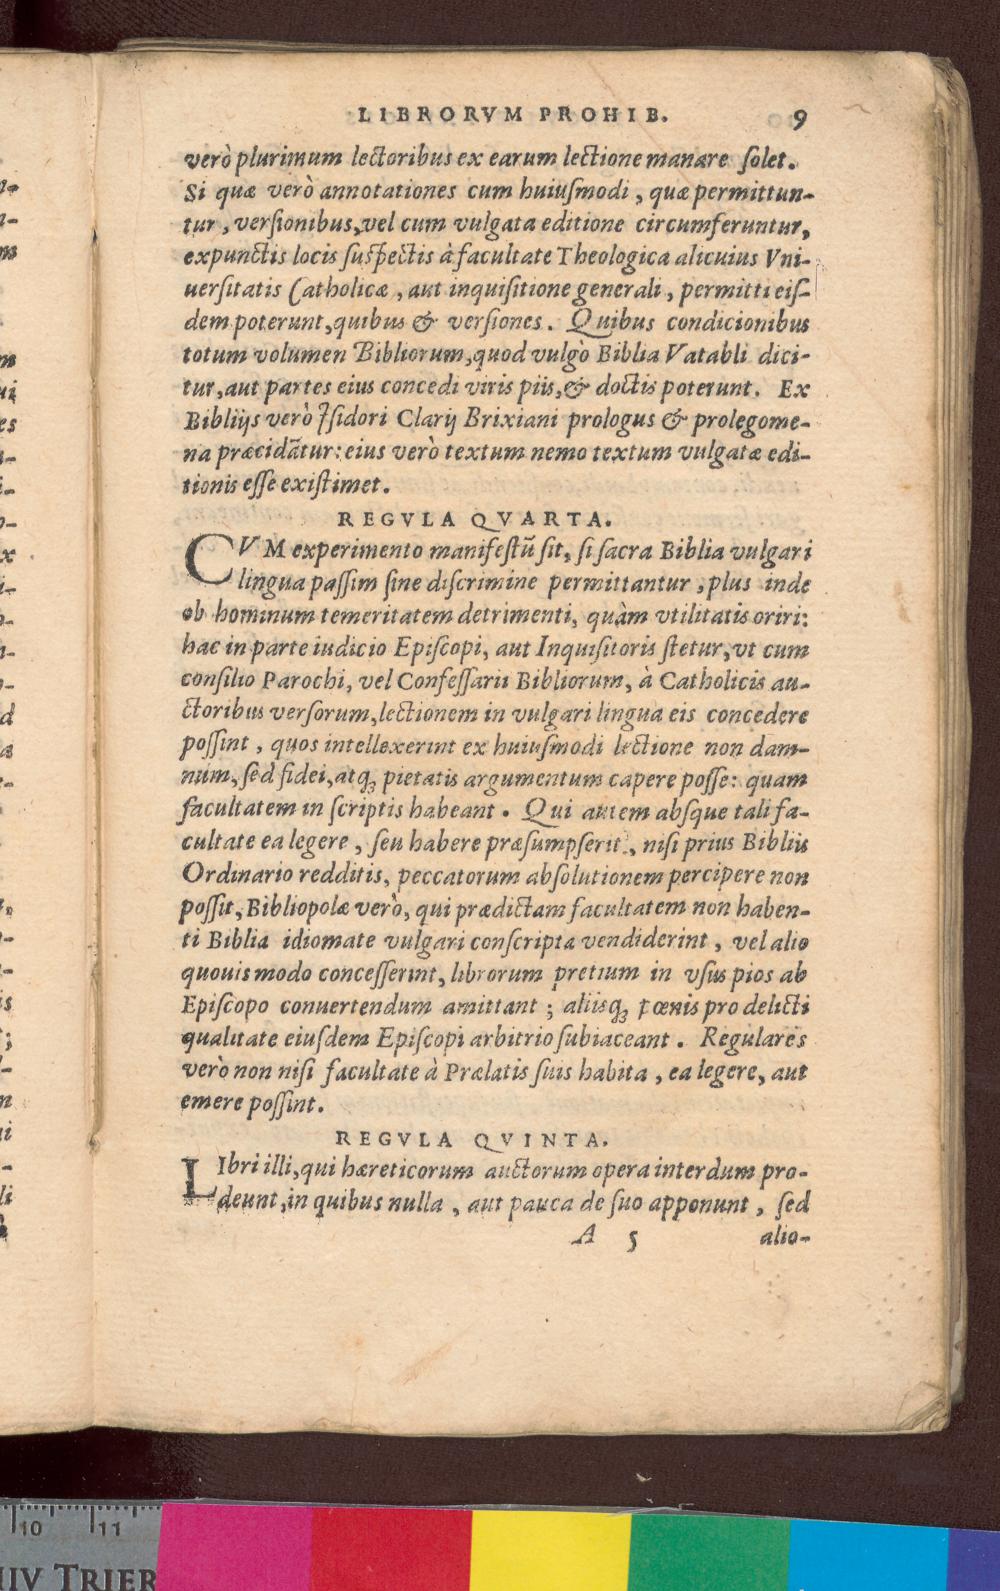 LIBRORVM PROHIB. 9
verò plurimum lectoribus ex earum lectione manare solet.
Si quæ verò annotationes cum huiusmodi, quæ permittun-
tur, versionibus, vel cum vulgata editione circumferuntur,
expunctis locis suspectis à facultate Theologica alicuius Vni-
uersitatis Catholicæ, aut inquisitione generali, permitti eis-
dem poterunt, quibus & versiones. Quibus condicionibus
totum volumen Bibliorum, quod vulgò Biblia Vatabli dici-
tur, aut partes eius concedi viris piis, & doctis poterunt. Ex
Bibliijs verò Isidori Clarij Brixiani prologus & prolegome-
na præcidãtur: eius verò textum nemo textum vulgatæ edi-
tionis esse existimet.
REGVLA QVARTA.
CVM experimento manifestũ sit, si sacra Biblia vulgari
lingua passim sine discrimine permittantur, plus inde
ob hominum temeritatem detrimenti, quàm vtilitatis oriri:
hac in parte iudicio Episcopi, aut Inquisitoris stetur, vt cum
consilio Parochi, vel Confessarii Bibliorum, à Catholicis au-
ctoribus versorum, lectionem in vulgari lingua eis concedere
possint, quos intellexerint ex huiusmodi lectione non dam-
num, sed fidei, atq; pietatis argumentum capere posse: quam
facultatem in scriptis habeant. Qui autem absque tali fa-
cultate ea legere, seu habere præsumpserit, nisi prius Bibliis
Ordinario redditis, peccatorum absolutionem percipere non
possit, Bibliopolæ verò, qui prædictam facultatem non haben-
ti Biblia idiomate vulgari conscripta vendiderint, vel alio
quouis modo concesserint, librorum pretium in vsus pios ab
Episcopo conuertendum amittant; aliisq; pœnis pro delicti
qualitate eiusdem Episcopi arbitrio subiaceant. Regulares
verò non nisi facultate à Prælatis suis habita, ea legere, aut
emere possint.
REGVLA QVINTA.
LIbri illi, qui hæreticorum auctorum opera interdum pro-
deunt, in quibus nulla, aut pauca de suo apponunt, sed
A 5 alio-
10 11
IIV TRIER